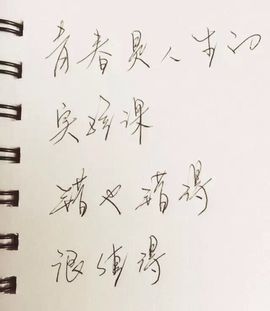 青春是人生的
实验课
错也错得
很值得